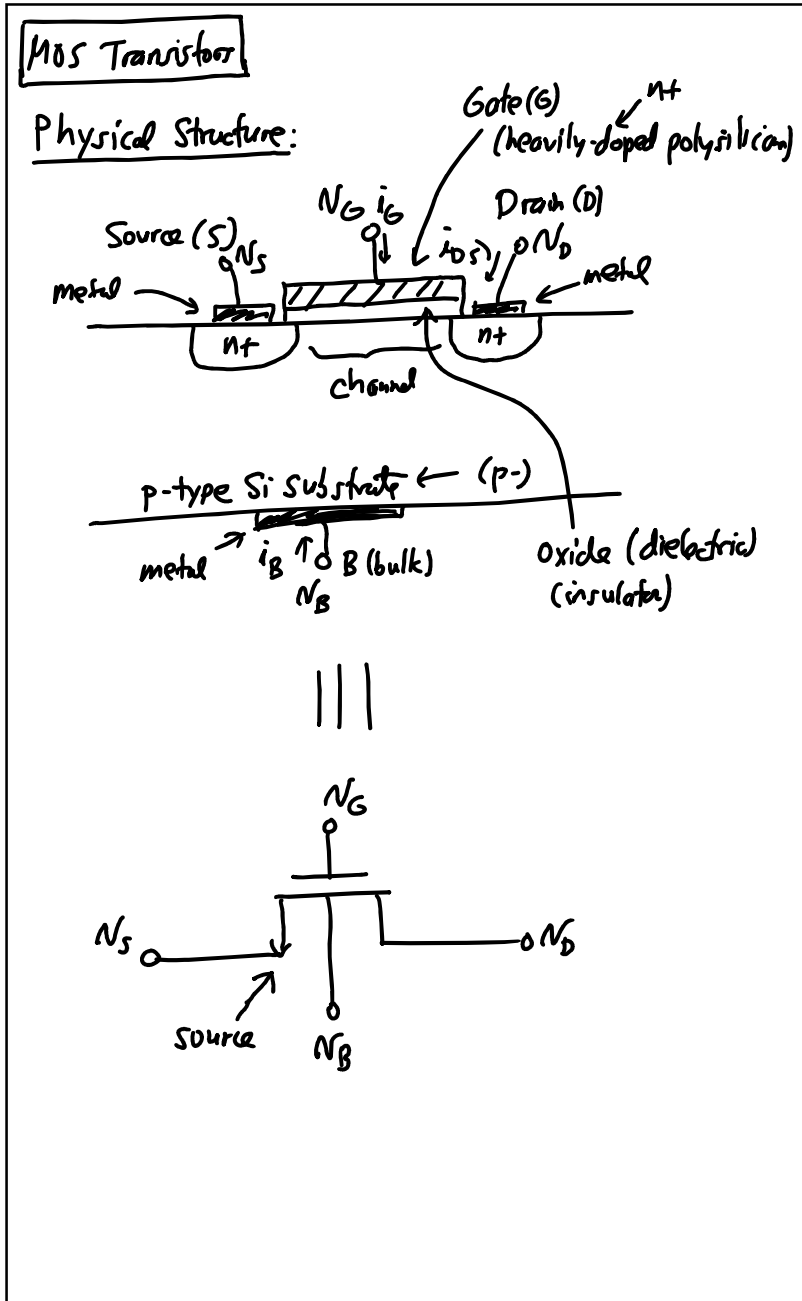 MOS Transistors
Physical Structure:
Gate (G)
n+
(heavily-doped polysilicon)
Source (S)
v_S
v_G i_G
i_DS
Drain (D)
v_D
metal
metal
n+
n+
channel
p-type Si substrate ← (p-)
metal
i_B
B (bulk)
v_B
oxide (dielectric)
(insulator)
v_G
v_S
v_D
source
v_B